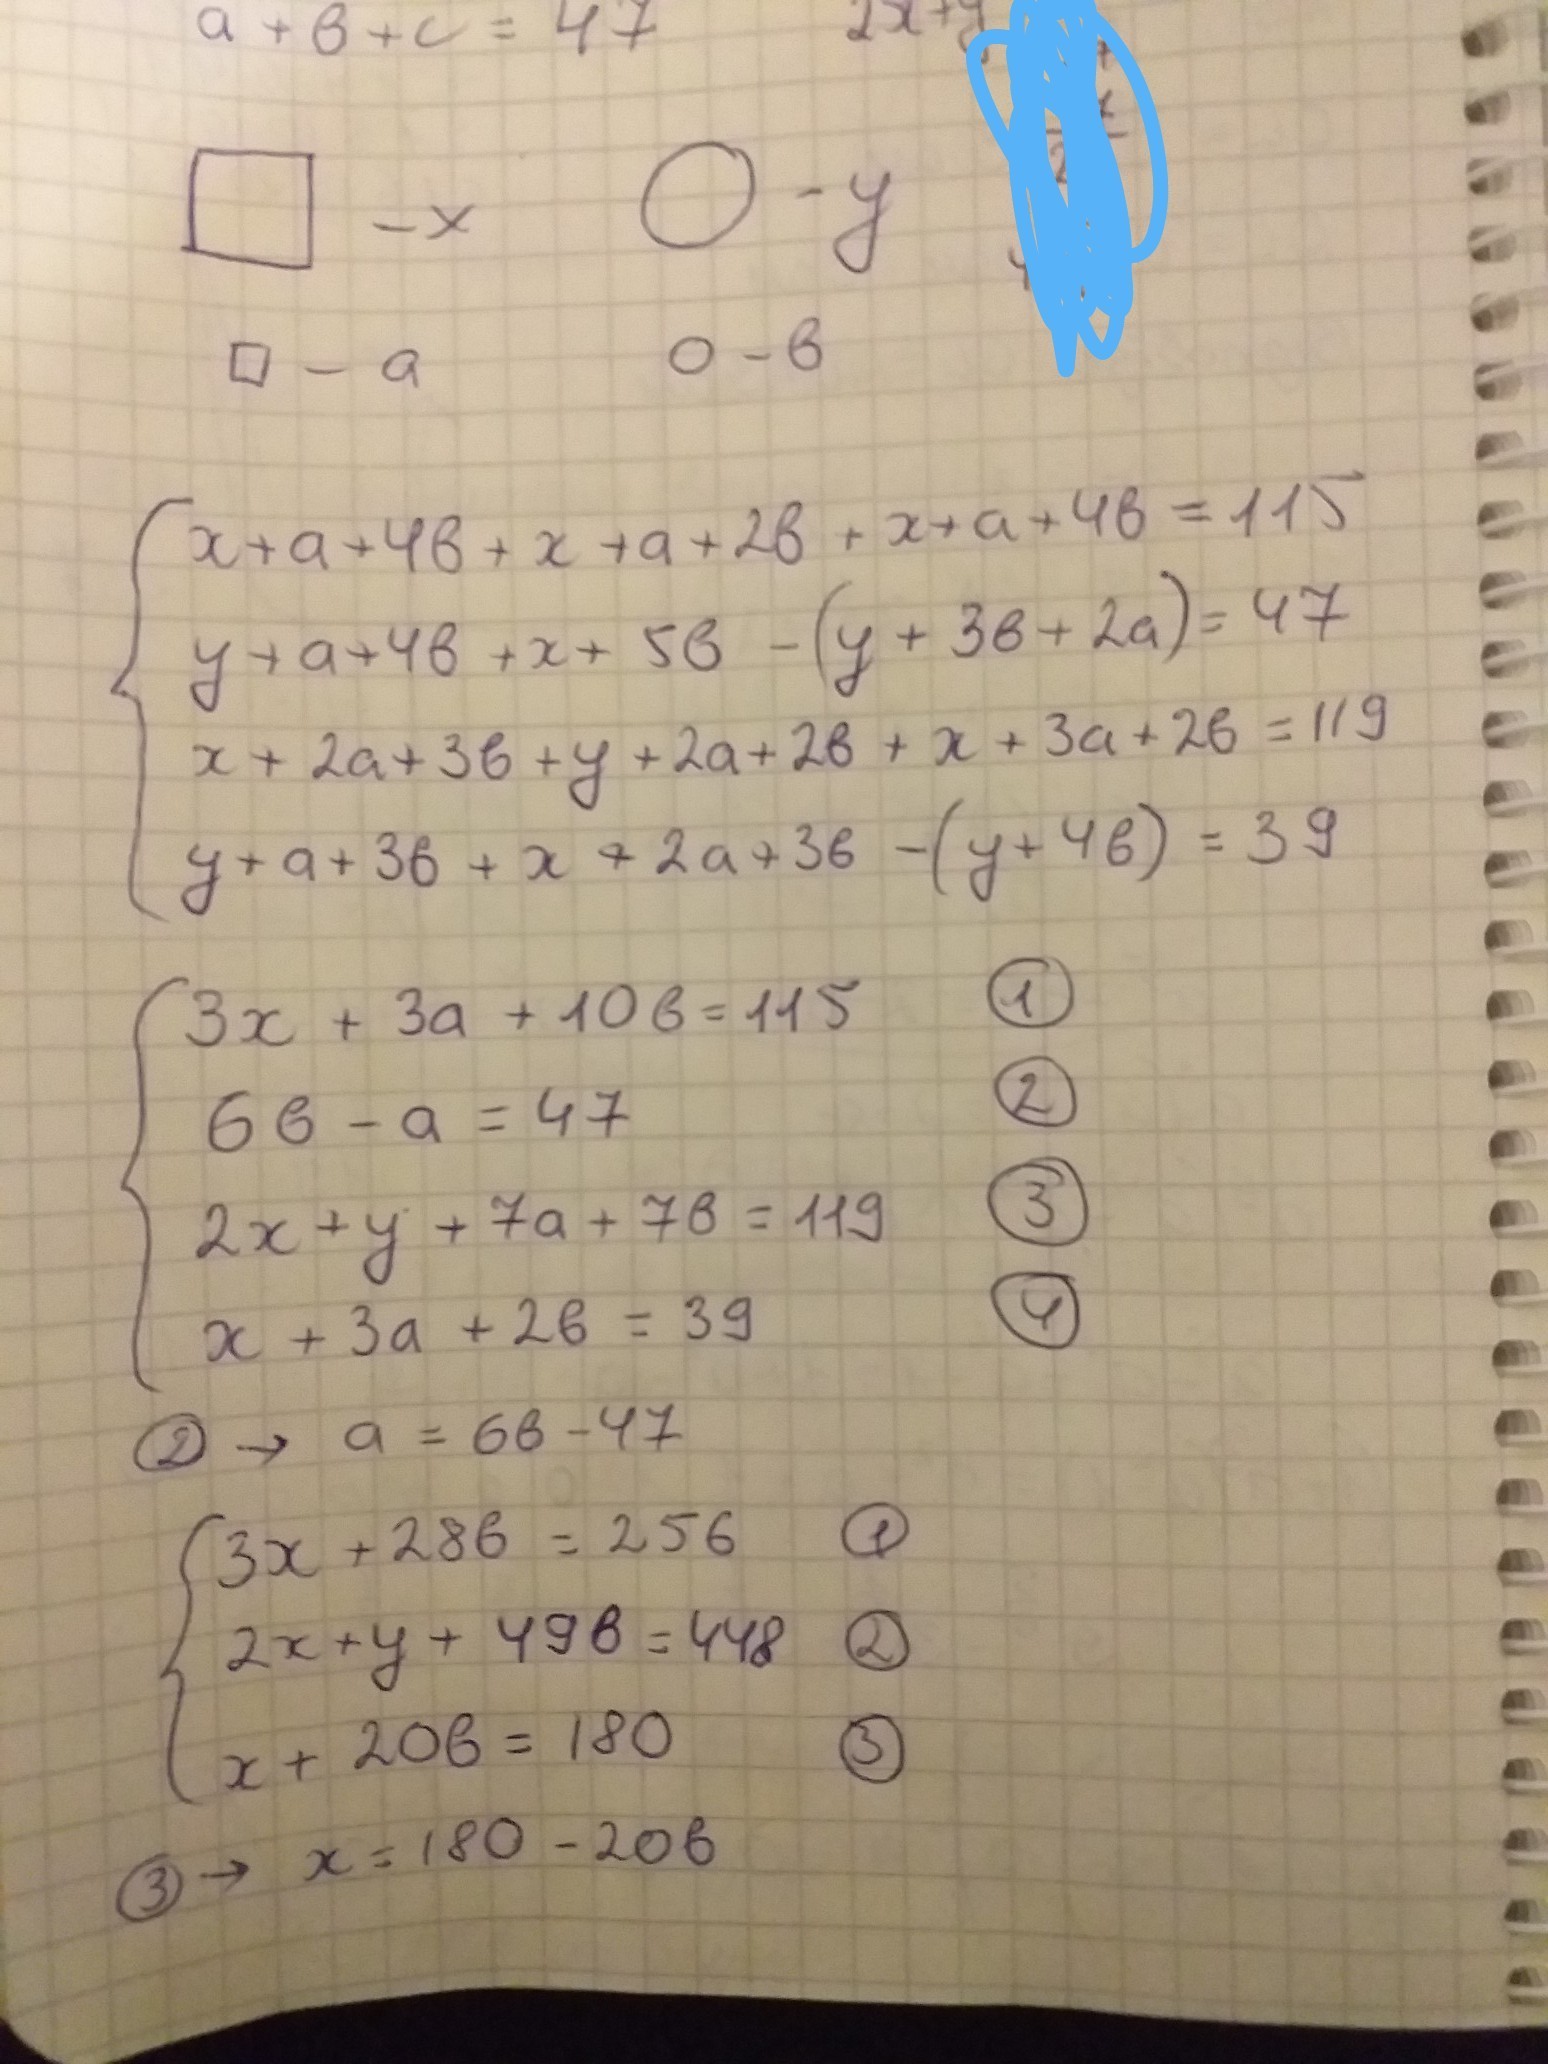 a + в + c = 47
2x+y
- x
- y
- a
- в
x + a + 4в + x + a + 2в + x + a + 4в = 115
y + a + 4в + x + 5в - (y + 3в + 2a) = 47
x + 2a + 3в + y + 2a + 2в + x + 3a + 2в = 119
y + a + 3в + x + 2a + 3в - (y + 4в) = 39
3x + 3a + 10в = 115 ①
6в - a = 47 ②
2x + y + 7a + 7в = 119 ③
x + 3a + 2в = 39 ④
② → a = 6в - 47
3x + 28в = 256 ①
2x + y + 49в = 448 ②
x + 20в = 180 ③
③ → x = 180 - 20в